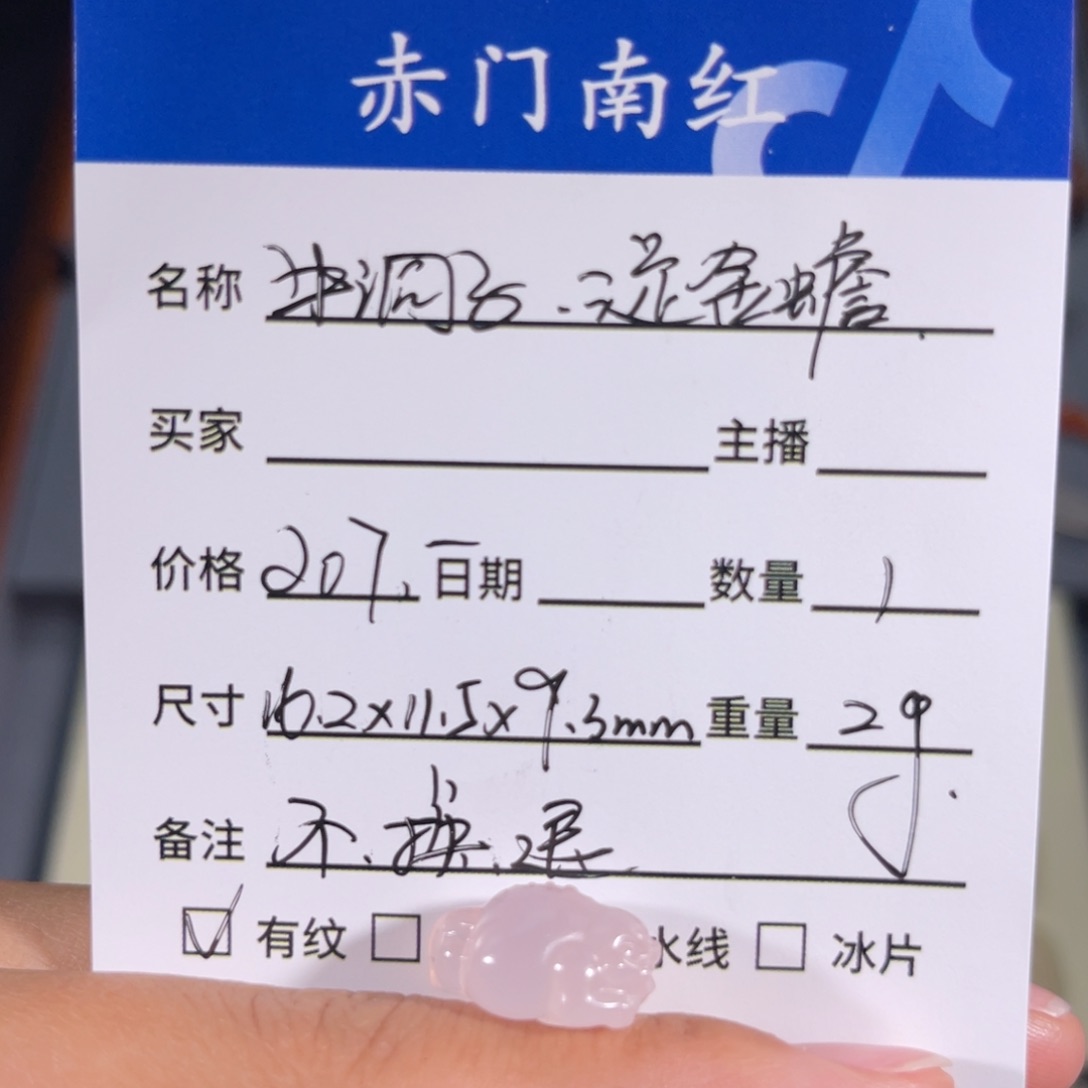 赤门南红
名称 水洞子.金蟾.
买家 主播
价格 207. 日期 数量 1
尺寸 16.2x11.5x9.3mm 重量 2g.
备注 不.换.退
有纹 水线 冰片